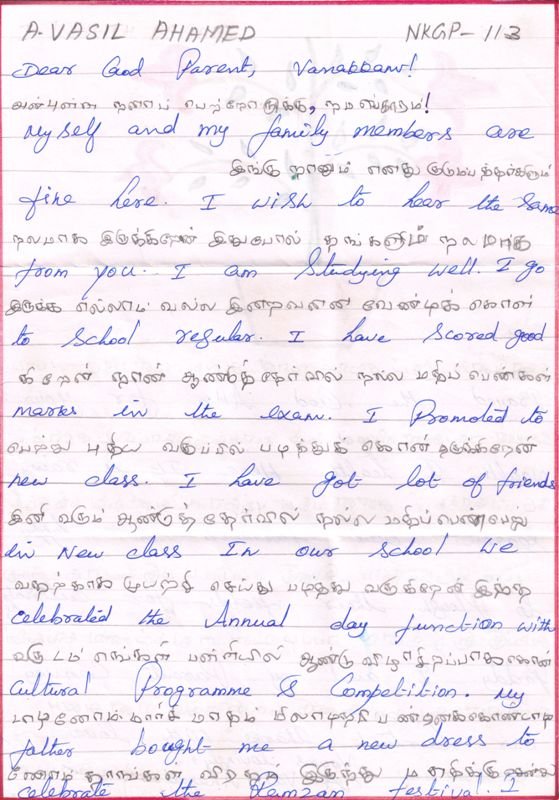 A. VASIL AHAMED NKGP - 113
Dear God Parent, Vanakkam!
அன்புள்ள ஞானப் பெற்றோருக்கு, நமஸ்காரம்!
Myself and my family members are
இங்கு நானும் எனது குடும்பத்தார்களும்
fine here. I wish to hear the same
நலமாக இருக்கிறேன் இதுபோல் தாங்களும் நலமாக
from you. I am Studying well. I go
இருக்க எல்லாம் வல்ல இறைவனை வேண்டிக் கொள்
to School regular. I have scored good
கிறேன் நான் ஆண்டுத் தேர்வில் நல்ல மதிப்பெண்கள்
marks in the exam. I Promoted to
பெற்று புதிய வகுப்பில் படித்துக் கொண்டிருக்கிறேன்
new class. I have got lot of friends
இனி வரும் ஆண்டுத் தேர்வில் நல்ல மதிப்பெண் பெறு
in New class In our school we
வதற்காக முயற்சி செய்து படித்து வருகிறேன் இந்த
celebrated the Annual day function with
வருடம் எங்கள் பள்ளியில் ஆண்டு விழா சிறப்பாக கொண்
Cultural Programme & Competition. My
டாடினோம். மார்ச் மாதம் மிலாடிநபி பண்டிகை கொண்டாடி
father bought me a new dress to
னோம் நாங்கள்
celebrate the Ramzan festival. I